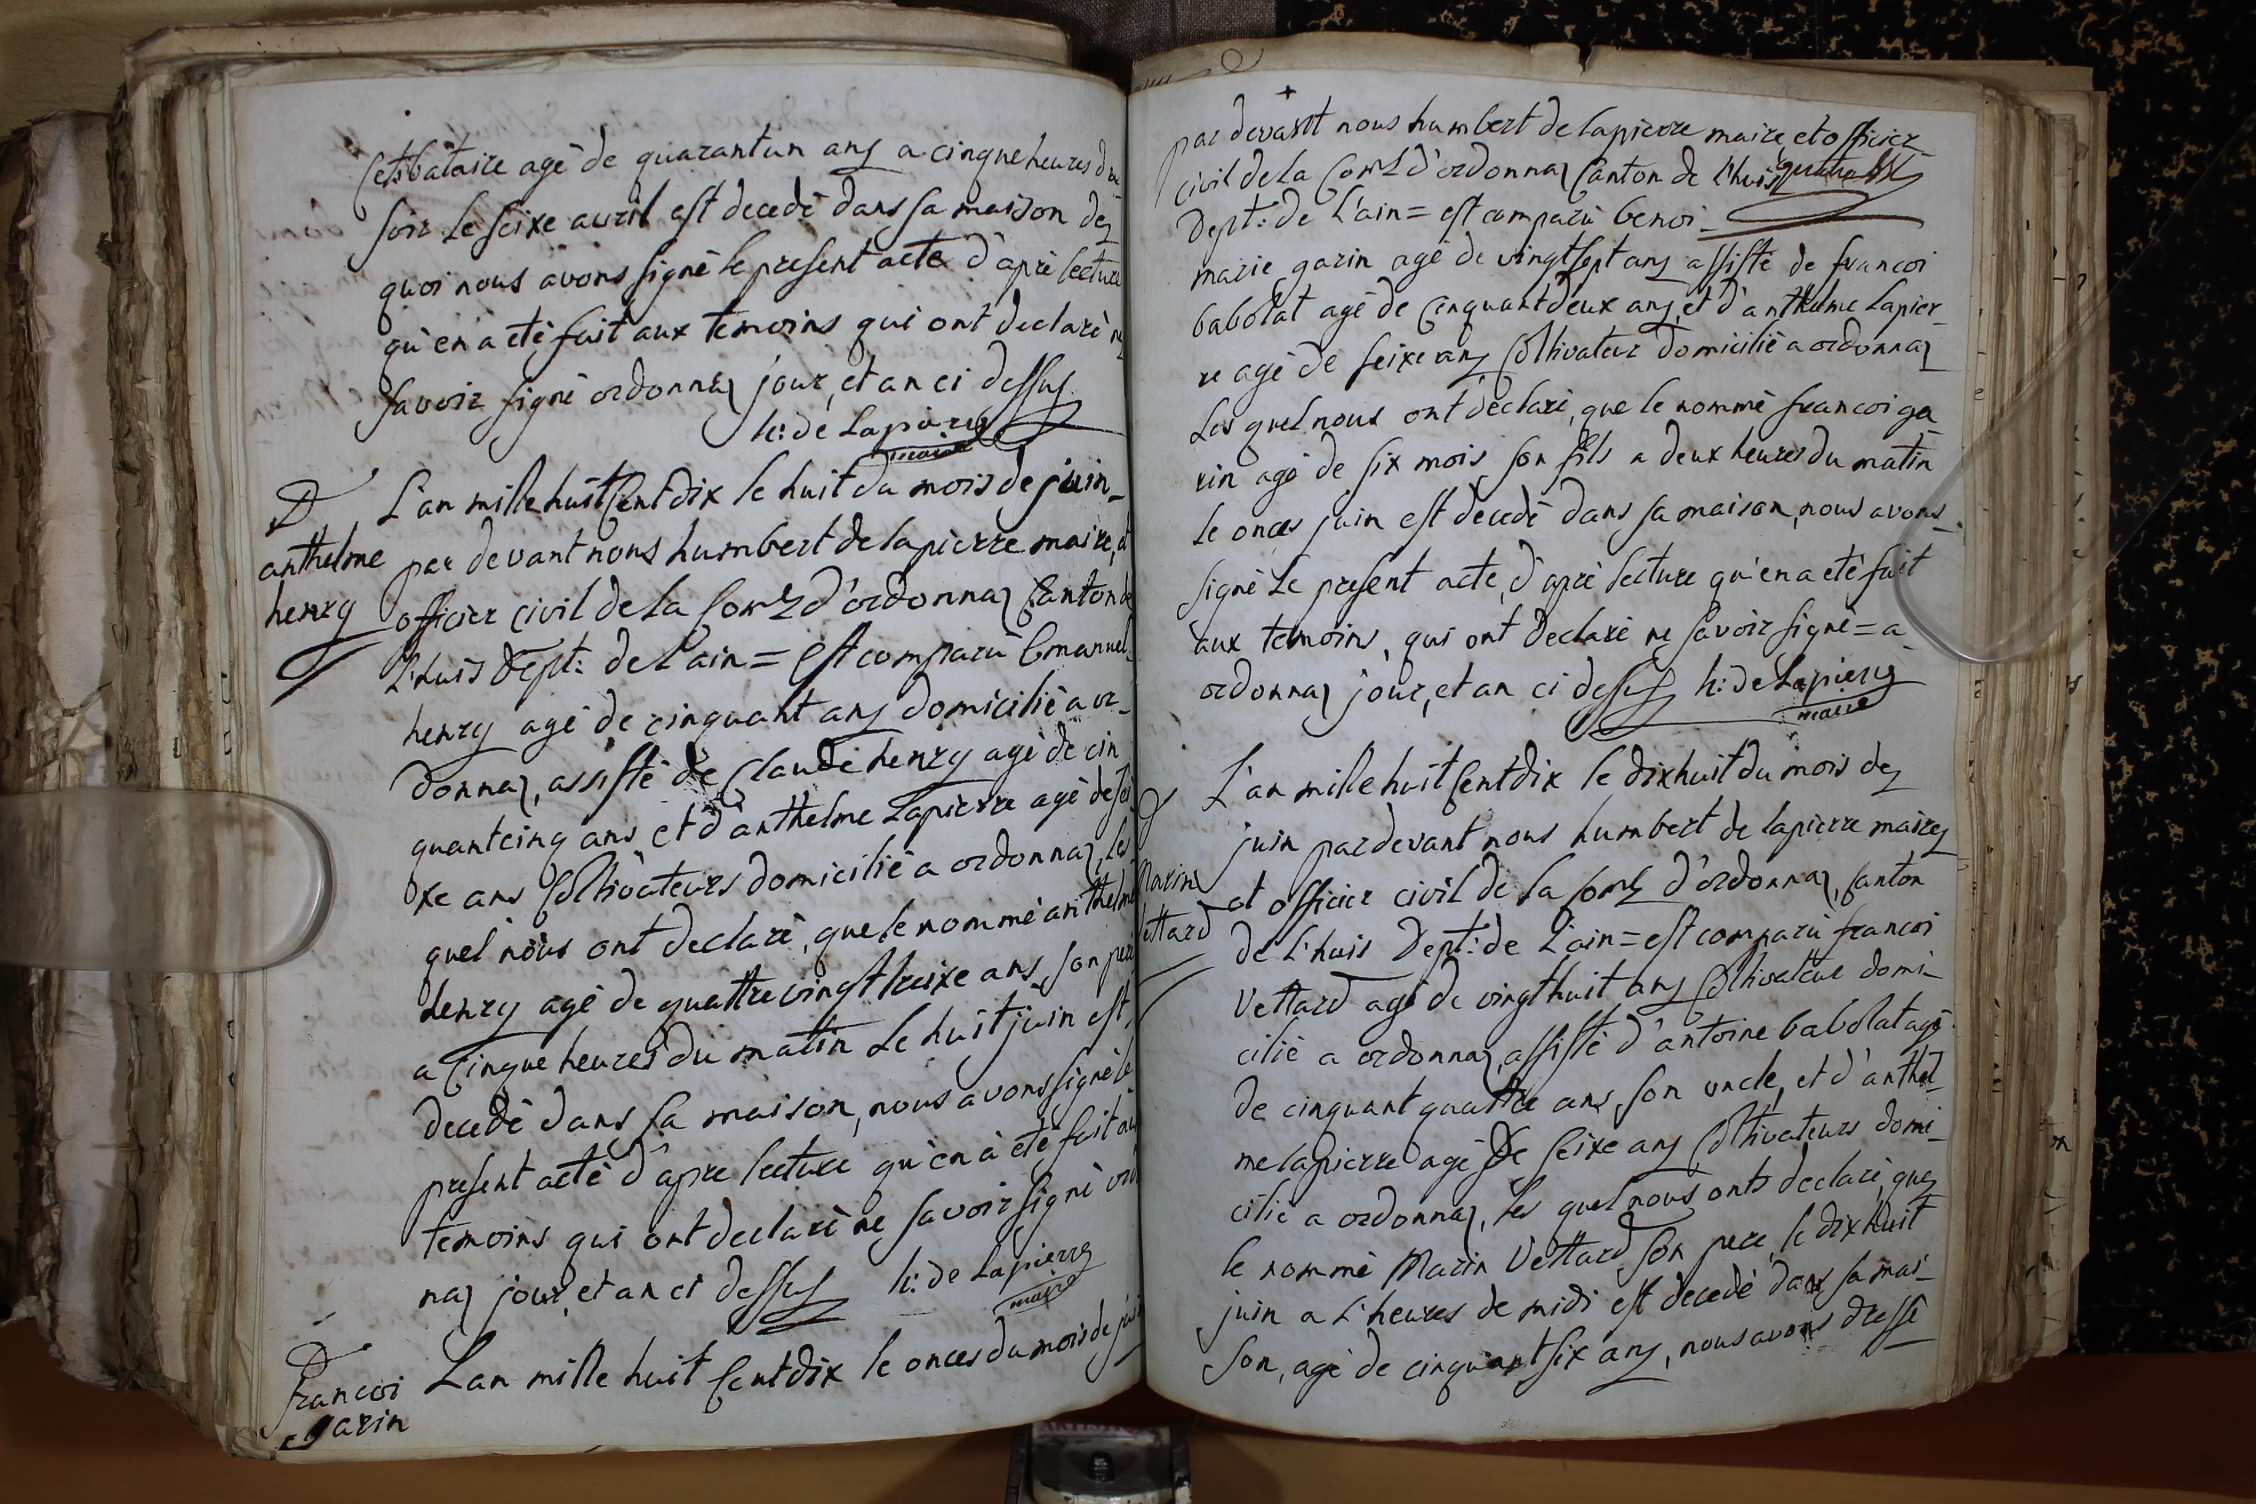 Celibataire agé de quarantun ans a cinque heures du
soir le seixe avril est decedé dans sa maison de
quoi nous avons signè le present acte d'aprè lecture
qu'en a etè fait aux temoins qui ont declarè ne
savoir signè ordonnaz jour, et an ci dessus
h: de Lapierre
maire
D
anthelme
henry
L'an mille huit Cent dix le huit du mois de juin
par devant nous humbert de lapierre maire, et
officier civil de la Com.e d'ordonnaz Canton de
L'huis Dept: de L'ain = est comparù Emanuel
henry agè de cinquant ans domiciliè a or-
donnaz, assistè de Claude henry agè de cin
quantcinq ans et d'anthelme Lapierre agè de sei
xe ans Coltivateurs domiciliè a ordonnaz, les
quel nous ont declarè, que le nommè anthelme
henry agè de quattrevingt treixe ans son pere
a Cinque heures du matin le huit juin est
decedè dans sa maison, nous avons signè le
present actè d'apre lecture qu'en à etè fait aux
temoins qui ont declarè ne savoir signè ord
naz jour, et an ci dessus h: de Lapierre
maire
D
francoi
garin
L'an mille huit Cent dix le onces du mois de juin
par devant nous humbert de lapierre maire, et officier
civil de la Com.e d'ordonnaz Canton de l'huis
Dept: de L'ain = est comparù benoi-
marie garin agè de vingtsept ans assistè de francoi
babolat agè de Cinquantdeux ans, et d'anthelme Lapier-
re agè de seixe ans Coltivateur domiciliè a ordonnaz
Les quel nous ont declarè, que le nommè francoi ga-
rin agè de six mois son fils a deux heures du matin
le onces juin est decedè dans sa maison, nous avons
signè le present acte, d'aprè lecture qu'en a etè fait
aux temoins, qui ont declarè ne savoir signè = a
ordonnaz jour, et an ci dessus h: de Lapierre
maire
D
Marin
Vettard
L'an mille huit Cent dix le dixhuit du mois de
juin pardevant nous humbert de lapierre maire
et officier civil de la Com.e d'ordonnaz, Canton
de L'huis Dept: de L'ain = est comparù francoi
Vettard agè de vingthuit ans Coltivatteur domi-
ciliè a ordonnaz, assistè d'antoine babolat agè
de cinquant quattre ans son oncle, et d'anthel-
me lapierre agè de seixe ans Coltivateurs domi-
ciliè a ordonnaz, les quel nous onts declarè, que
le nommè Marin Vettard son pere, le dixhuit
juin a L'heures de midi est decedè dans sa mai-
son, agè de cinquantsix ans, nous avons dressè